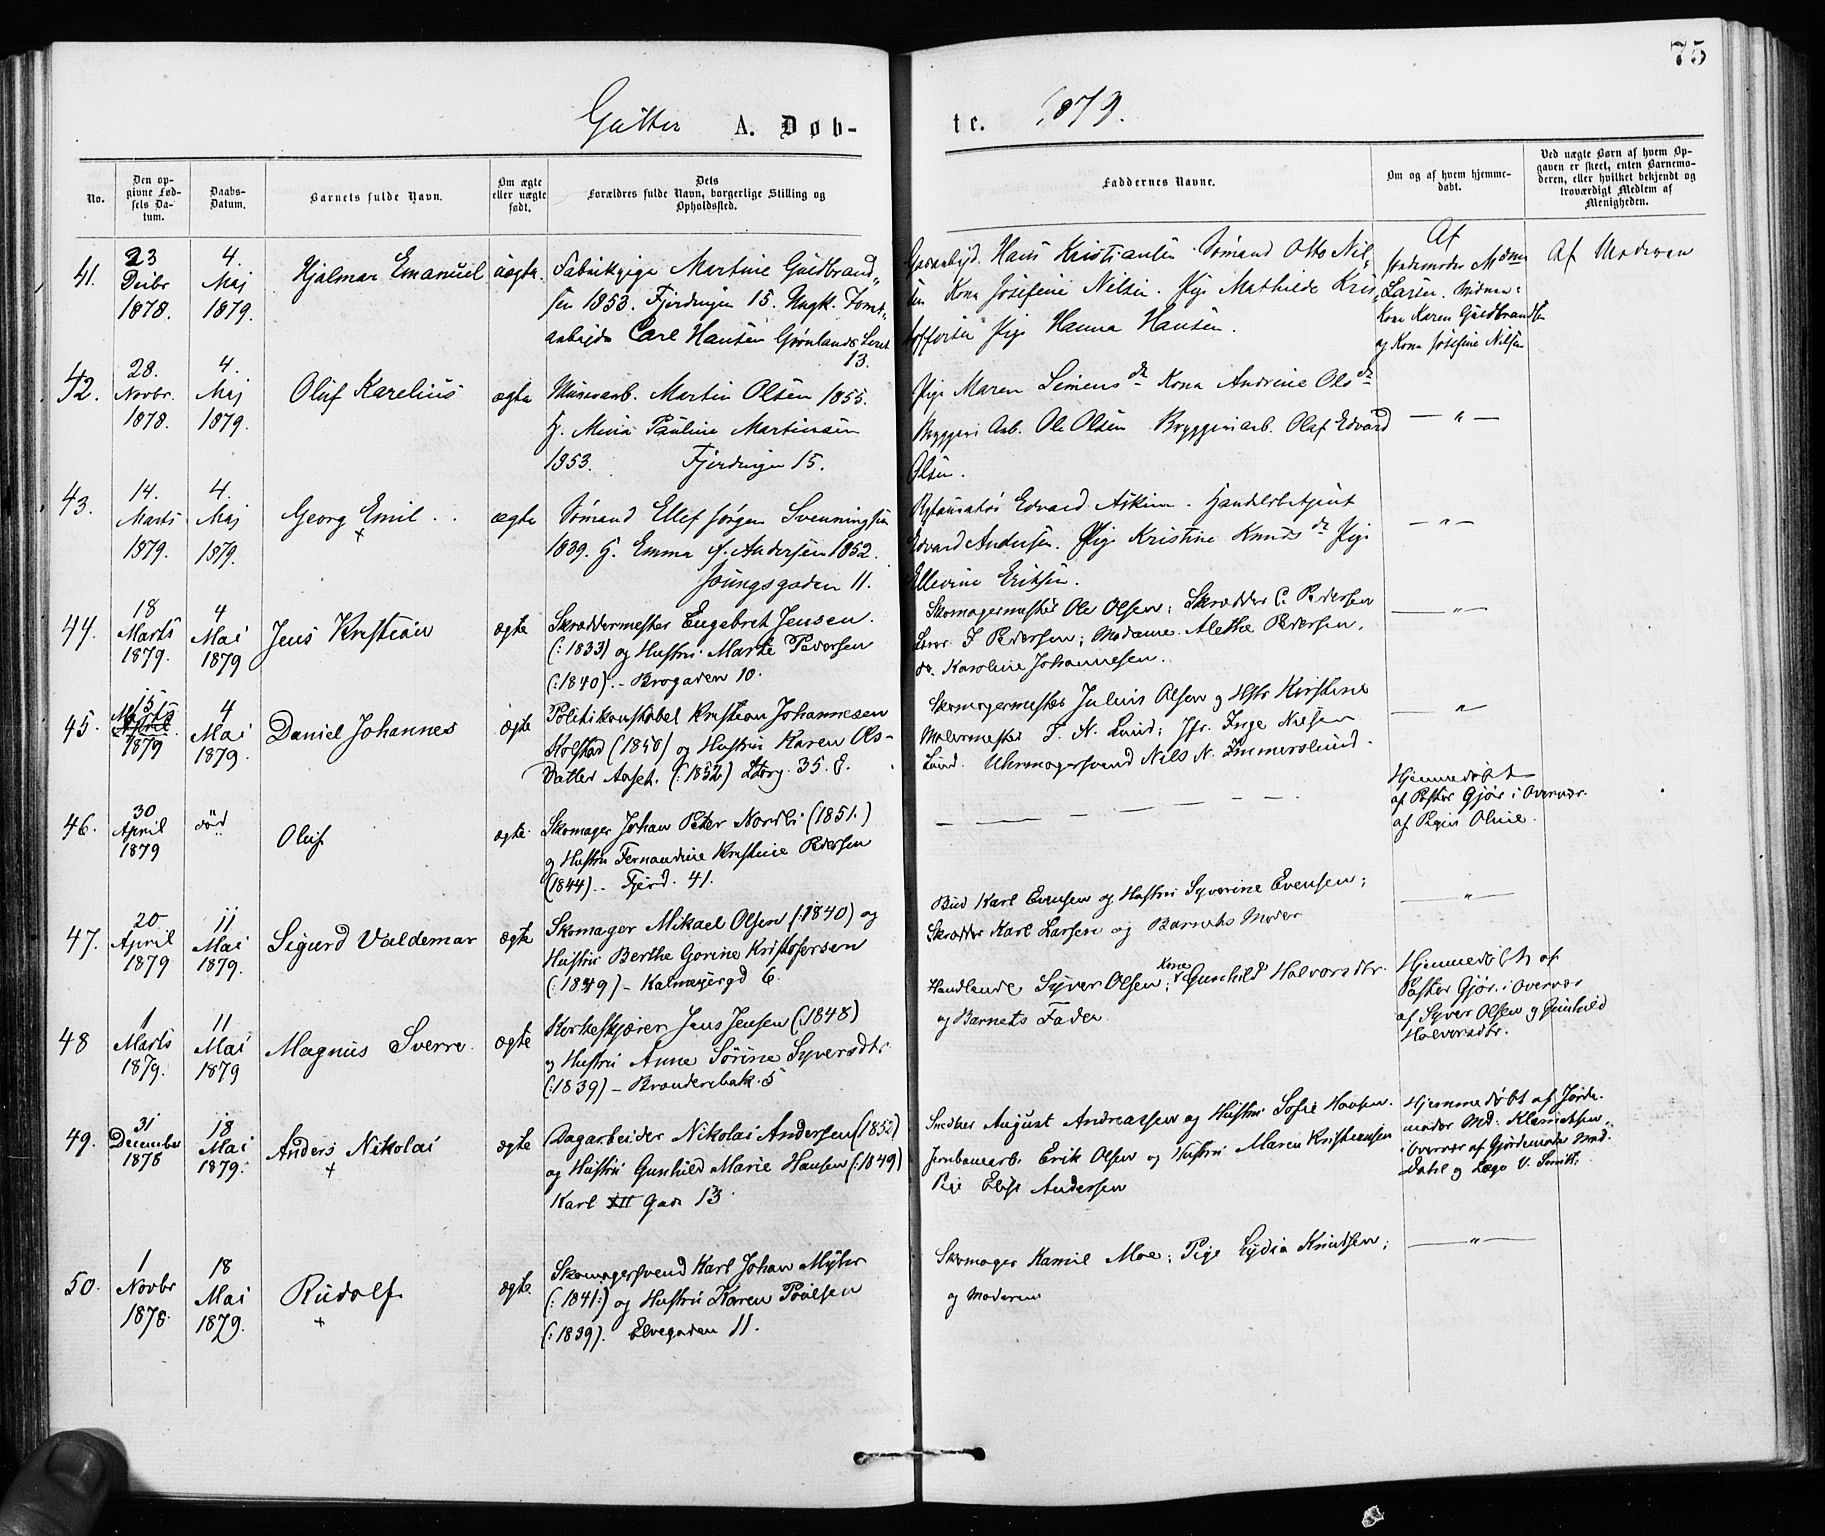 75
Gutter A. Døb-
te. 1879.
No.
Den op-
givne Fød-
sels Da-
tum.
Daabs-
Datum.
Barnets fulde Navn.
Om ægte
eller uægte
født.
Dets
Forældres fulde Navn, borgerlige Stilling og
Opholdssted.
Faddernes Navne.
Om og af hvem hjemme-
døbt.
Ved uægte Børn af hvem Op-
gaven er skeet, enten Barnemo-
deren, eller hvilket bekjendt og
troværdigt Medlem af
Menigheden.
41.
23
Decbr
1878.
4.
Maj
1879.
Hjalmar Emanuel
uægte.
Fabrikpige Martine Guldbrand-
sen 1853. Fjerdingen 15. Ungk. Tomt-
arbejder Carl Hansen Grønlands Leret
13.
Gasarbejd. Hans Kristiansen. Sømand Otto Nil-
sen Kona Josefine Nilsen. Pige Mathilde Kris-
toffersen Pige Hanna Hansen.
Af
Jordemoder Mdme
Larsen. Vidner:
Kone Karen Guldbrandsen
og Kona Josefine Nilsen
Af Moderen
42.
28.
Novbr.
1878.
4.
Maj
1879.
Oluf Karelius
ægte
Murerarb. Martin Olsen 1855.
H. Mina Pauline Martinsen
1853. Fjerdingen 15.
Pige Maren Simensdr Kona Andrine Olsdr
Bryggeri Arb. Ole Olsen Bryggeriarb. Olaf Edvard
Olsen.
— " —
43.
14.
Marts
1879.
4.
Maj
1879.
Georg Emil
+
ægte
Sømand Ellef Jørgen Svenningsen
1839. H. Emma f. Andersen 1852.
Youngsgaden 11.
Restauratør Edvard Askim. Handelsbetjent
Edvard Andersen. Pige Kristine Knudsdr Pige
Ellevine Eriksen.
— " —
44.
18
Marts
1879.
4
Mai
1879
Jens Kristian
ægte
Skræddermester Engebret Jensen.
(:1833) og Hustru Marte Pedersen
(:1840). - Brogaden 10.
Skomagermester Ole Olsen; Skrædder C. Pedersen
Lærer J Pedersen; Madame Alethe Pedersen,
do. Karoline Johannesen.
— " —
45.
15
Marts
1879
4
Mai
1879.
Daniel Johannes
ægte
Politikonstabel Kristian Johannesen
Kolstad (1850) og Hustru Karen Os-
Vatler Aaset. (:1852) Storg. 35. J.
Skomagermester Julius Olsen og Hstr Kirstine
Malermester T. N. Lund; Jfr. Inge Nilsen
Lund. Uhrmagersvend Nils N. Immerslund.
— " —
46.
30
April
1879
død
Oluf
ægte.
Skomager Johan Peter Nordli (1851.)
og Hustru Fernandine Kristine Pedersen
(1844). - Fjerd. 41.
— — — — —
Hjemmedøbt
af Pastor Gjør i Overvær
af Pigen Oline.
47.
20
April
1879
11
Mai
1879.
Sigurd Valdemar
ægte
Skomager Mikael Olsen (:1840) og
Hustru Berthe Gorine Kristofersen
(:1849) - Kalmeyergd 6.
Bud Karl Evensen og Hustru Syverine Evensen;
Skrædder Karl Larsen og Barnets Moder
— " —
48
1
Marts
1879.
11
Mai
1879
Magnus Sverre.
ægte
Kirkeskjærer Jens Jensen (:1848)
og Hustru Anne Sörine Syversdtr
(:1839) - Brenderibak. 5
Handlende Syver Olsen; Kone Gunhild Halvorsdtr.
og Barnets Fader.
Hjemmedøbt af
Pastor Gjør i Overvær
af Syver Olsen og Gunhild
Halvorsdtr.
49.
31
December
1878
18
Mai
1879.
Anders Nikolai
+
ægte
Dagarbeider Nikolai Andersen (1852)
og Hustru Gunhild Marie Hansen (:1849)
Karl XII Gade 13.
Snedker August Andreassen og Hustru Sofie Hansen.
Jernbanearb. Erik Olsen og Hustru Maren Kristiansen
Pige Elise Andersen
Hjemmedøbt af Jorde-
moder Md. Klemetsen
i Overvær af Gjordemoder Mad.
Dahl og Læge V. Smith.
50.
1
Novbr
1878.
18
Mai
1879.
Rudolf
+
ægte
Skomagersvend Karl Johan Myhr
(:1841:) og Hustru Karen Poulsen
(:1839). Elvegaden 11.
Skomager Kamil Moe; Pige Lydia Knutsen;
og Moderen
— " —